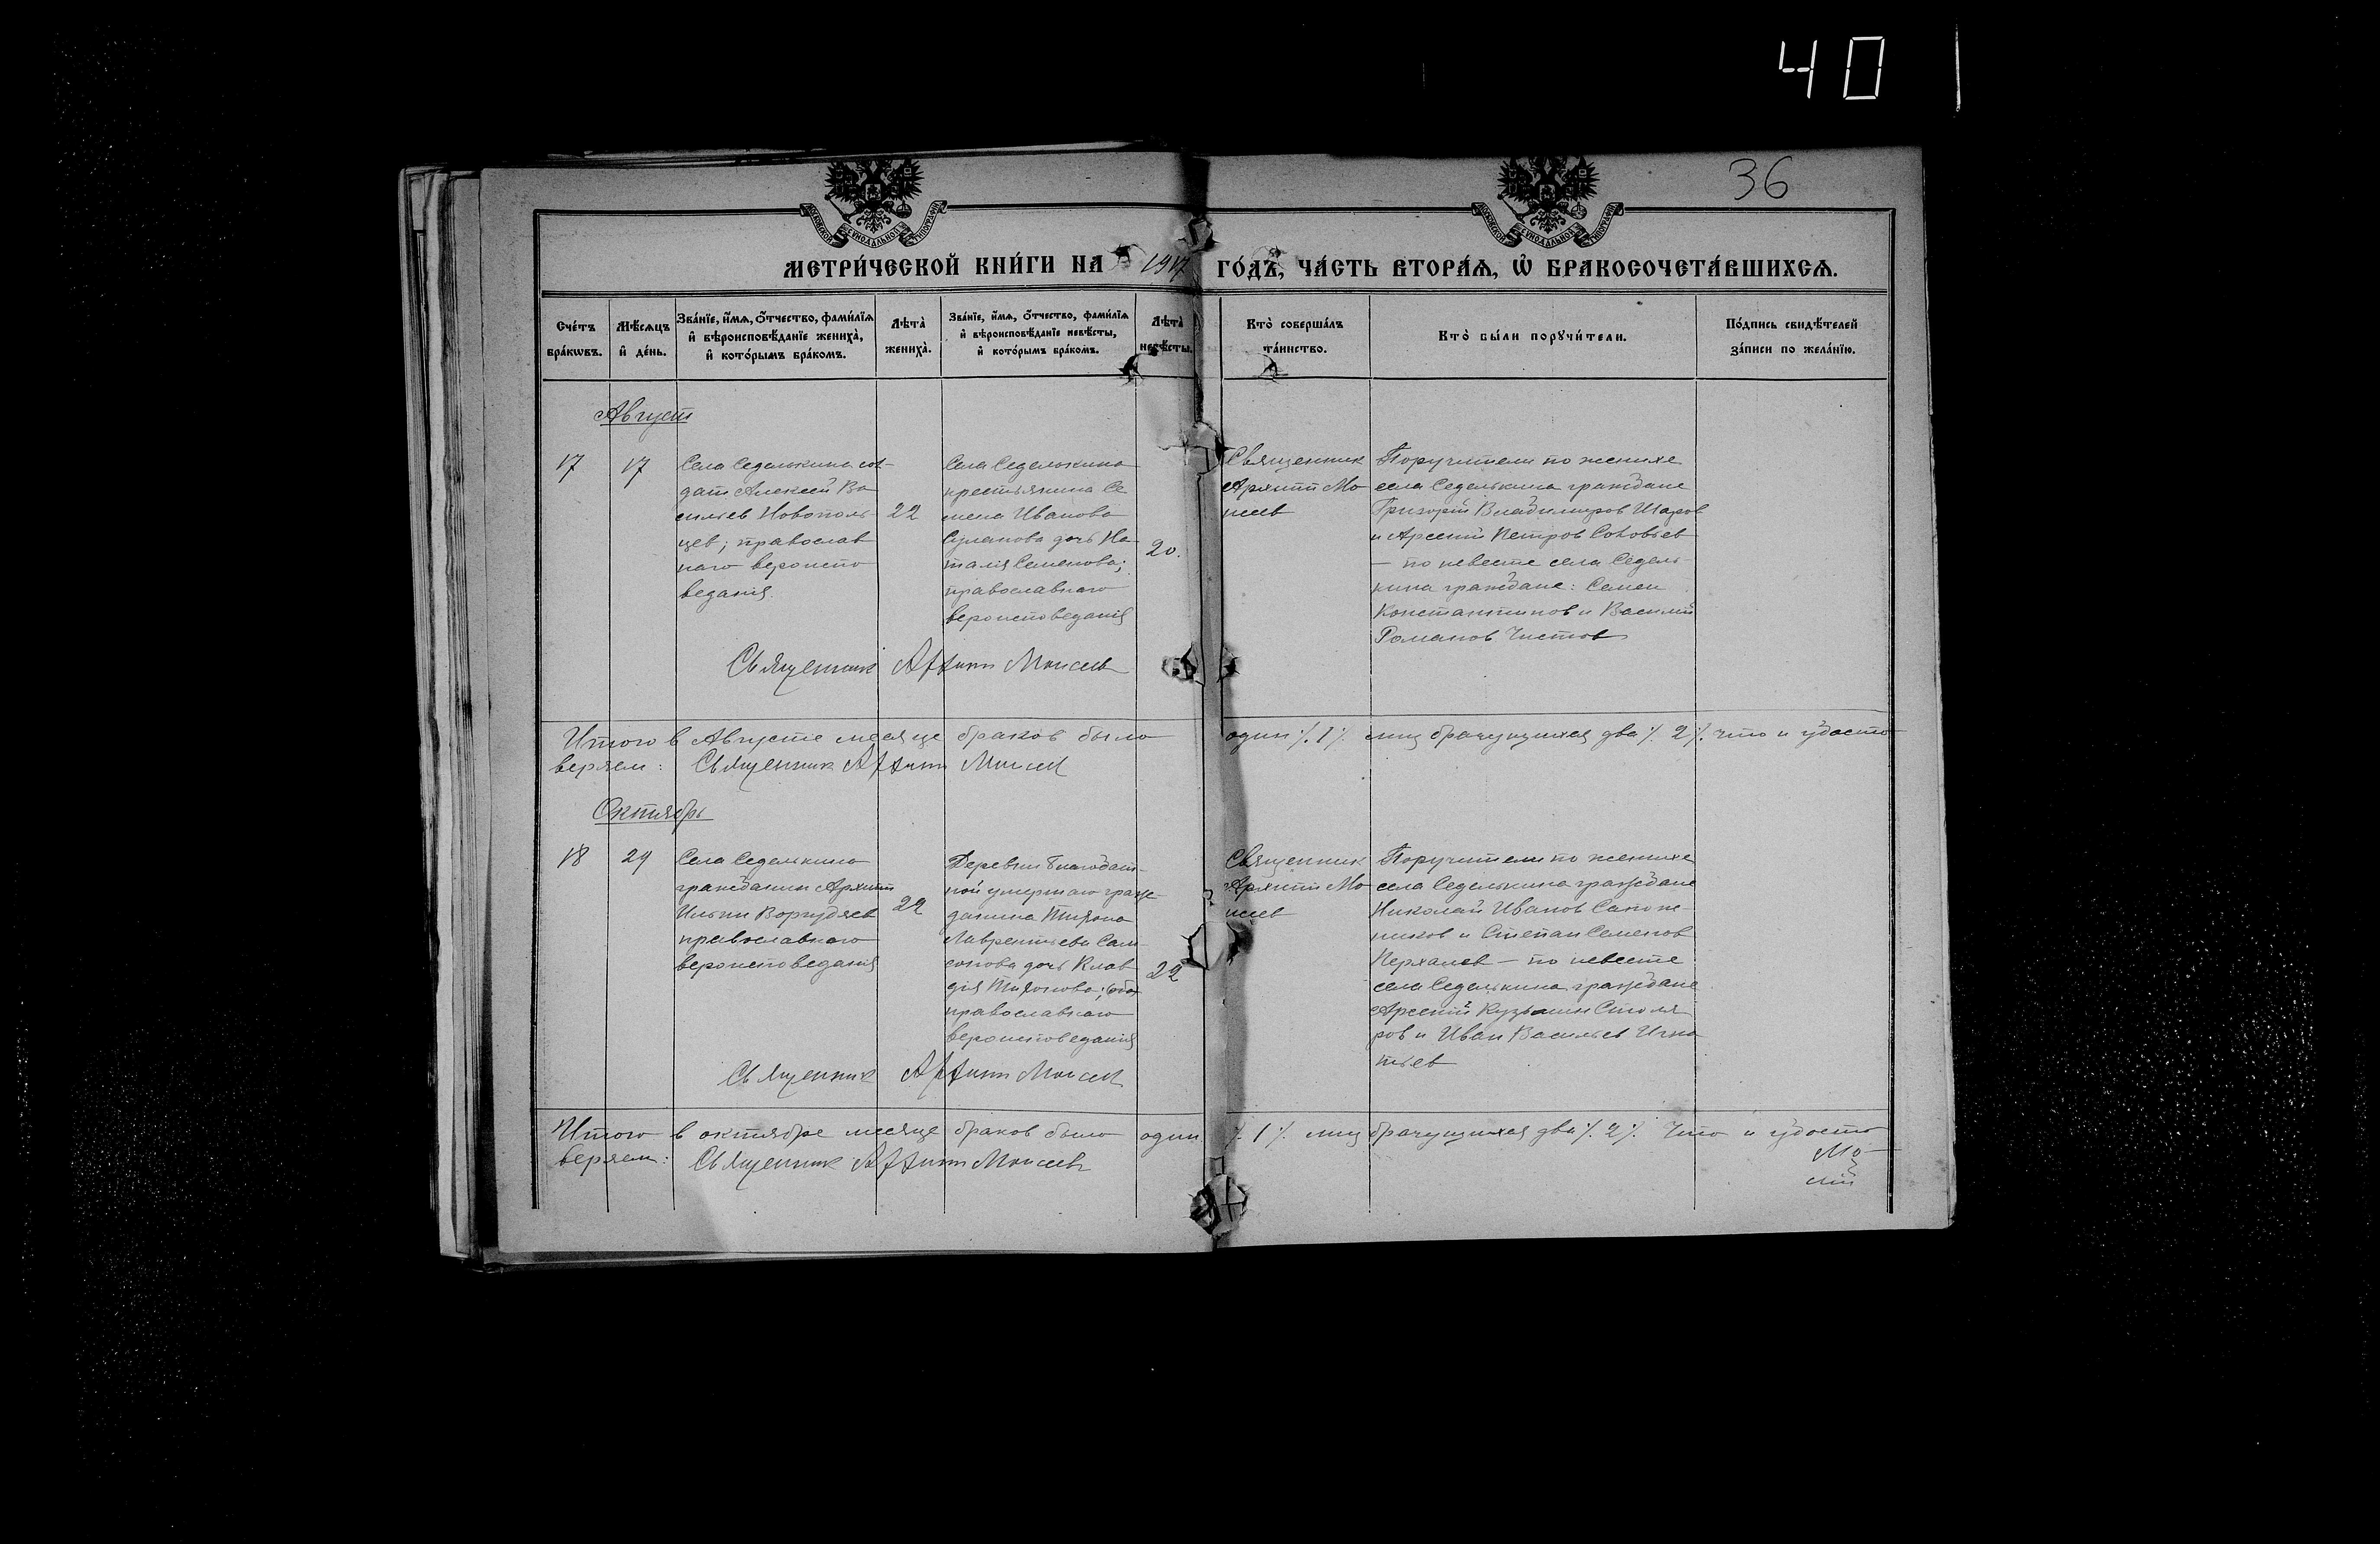 40
36
МЕТРИ́ЧЕСКОЙ КНИ́ГИ НА 1917 ГО́ДЪ, ЧА́СТЬ ВТОРА́Я, Ѡ БРАКОСОЧЕТА́ВШИХСѦ.
Сче́тъ бра́кѡвъ.
Мѣ́сѧцъ и де́нь.
Зва́нїе, и́мѧ, ѻ́тчество, фами́лїѧ и вѣроисповѣ́данїе жениха̀, и кото́рымъ бра́комъ.
Лѣта̀ жениха̀.
Зва́нїе, и́мѧ, ѻ́тчество, фами́лїѧ и вѣроисповѣ́данїе невѣ́сты, и кото́рымъ бра́комъ.
Лѣта̀ невѣ́сты.
Кто̀ соверша́лъ та́инство.
Кто̀ бы́ли порꙋчи́тели.
По́дпись свидѣ́телей за́писи по жела́нїю.
Август
17
17
Села Седелькина сол-
дат Алексей Ва
сильев Новополь-
цев; православ
наго вероиспо
ведания.
22
Села Седелькина
крестьянина Се
мена Иванова
дочь На-
талия Семенова;
православнаго
вероисповедания
20.
Священник
Архипп Мо
исеев
Поручители по женихе
села Седелькина граждане
Григорий Владимиров Шаров
и Арсений Петров Соловьев
— по невесте села Седель-
кина граждане: Семен
Константинов и Василий
Романов Чистов
Священник Архипп Моисеев
Итого в Августе месяце браков было один ٪ 1 ٪ лиц брачущихся два ٪ 2 ٪ что и удосто
веряем: Священник Архипп Моисеев
Октябрь
18
29
Села Седелькина
гражданин Архипп
Ильин Воргудяев
православнаго
вероисповедания
22
Деревни Благодат-
ной умершаго граж-
данина Тихона
Лаврентьева Сам
сонова дочь Клав
дия Тихонова; оба
православнаго
вероисповедания
22
Священник
Архипп Мо
исеев
Поручители по женихе
села Седелькина граждане
Николай Иванов Сапож-
ников и Степан Семенов
— по невесте
села Седелькина граждане
Арсений Кузьмин Столя
ров и Иван Васильев Игна
тьев
Священник Архипп Моисеев
Итого в октябре месяце браков было один ٪ 1 ٪ лиц брачущихся два ٪ 2 ٪ Что и удосто
веряем: Священник Архипп Моисеев